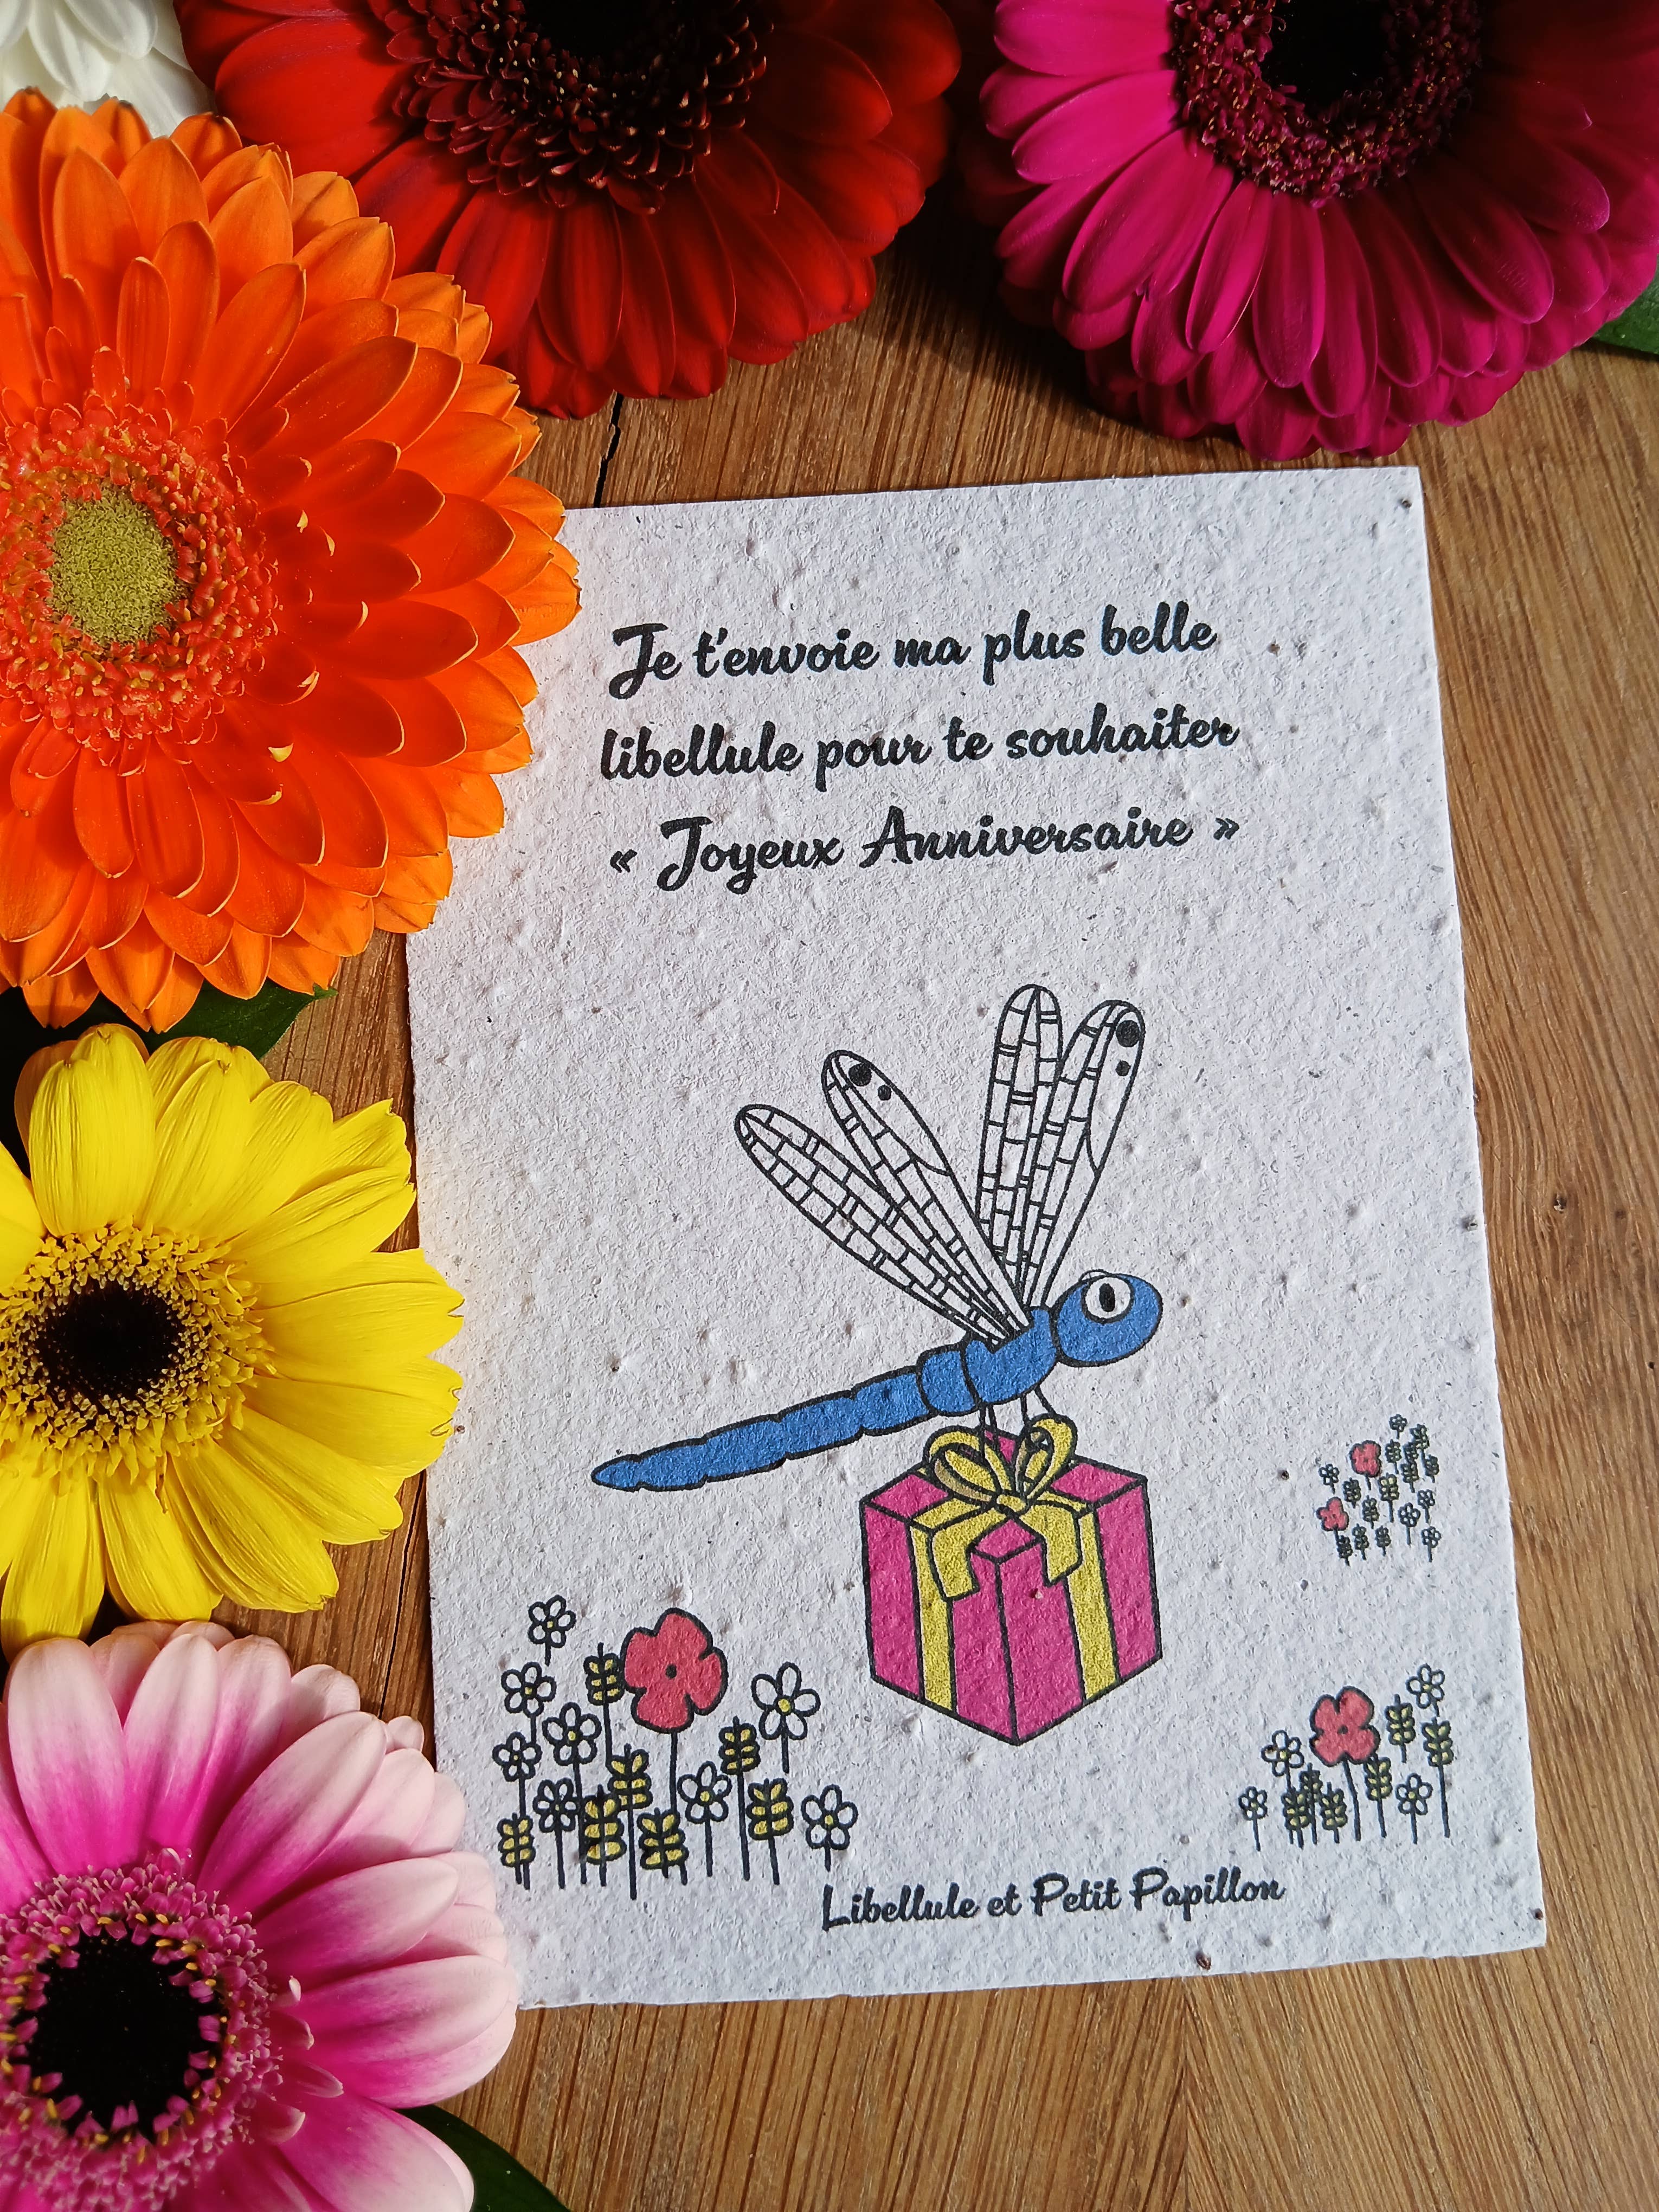 Je t'envoie ma plus belle
libellule pour te souhaiter
« Joyeux Anniversaire »
Libellule et Petit Papillon